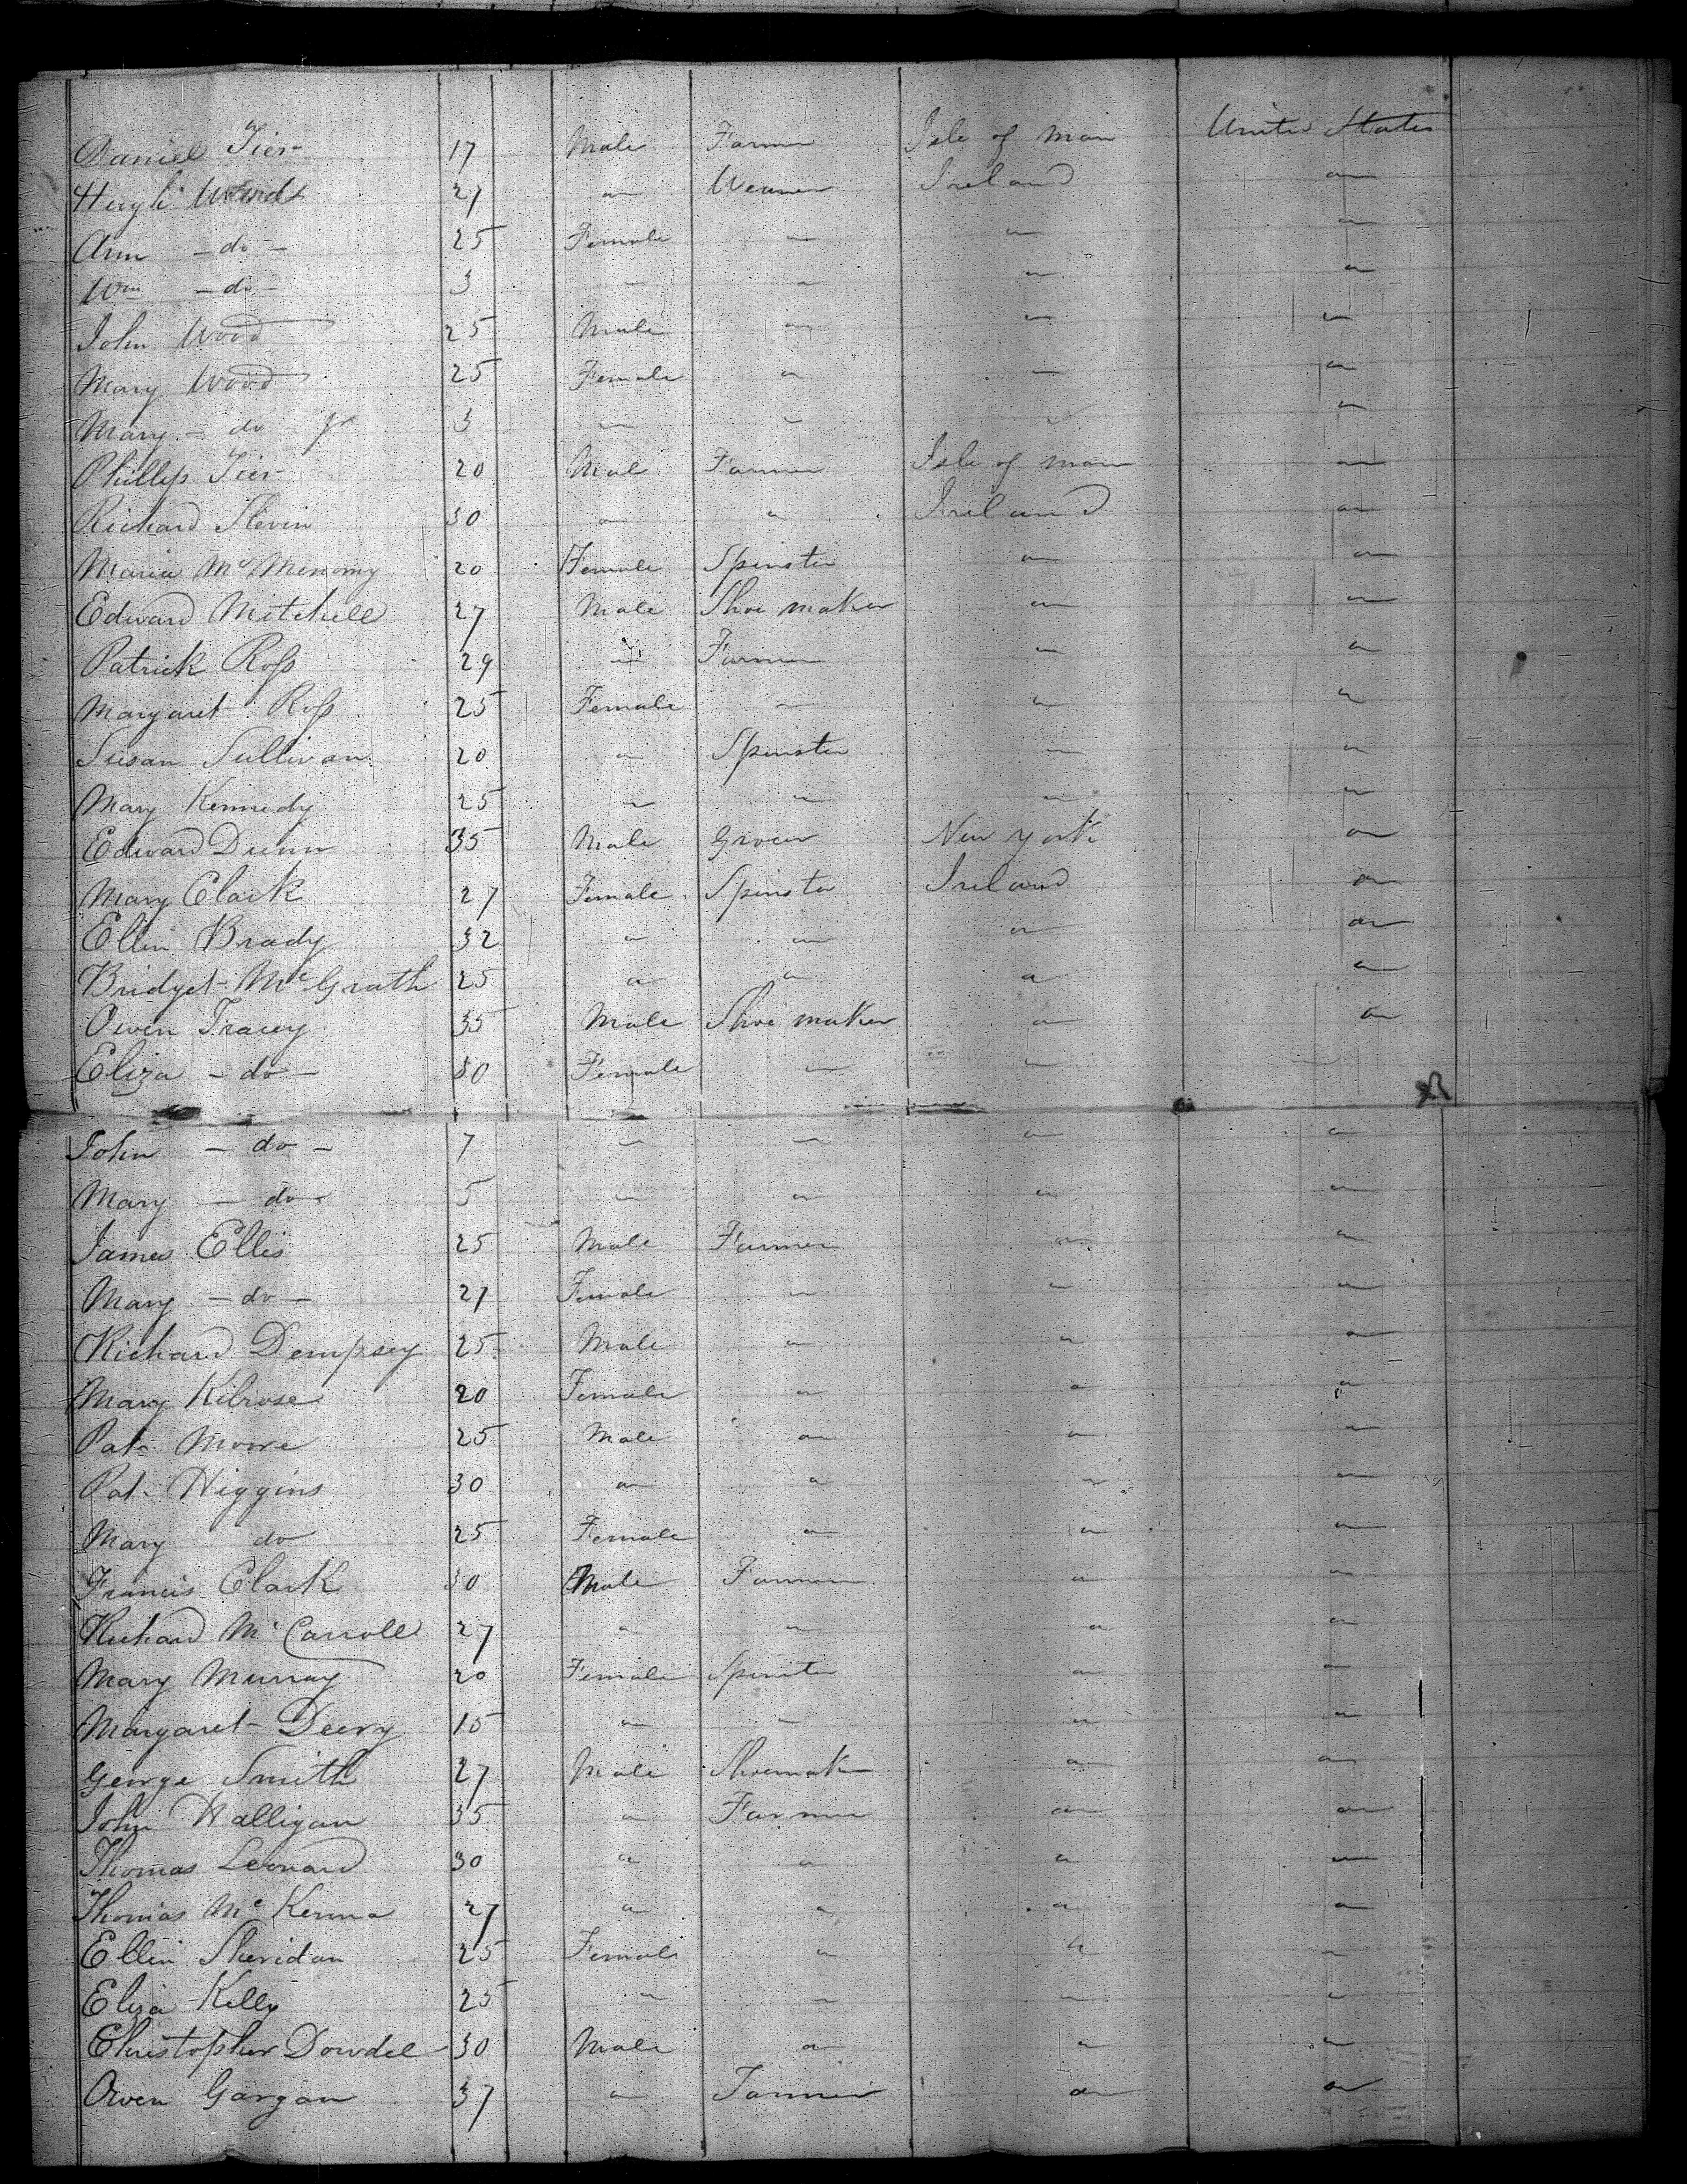 Daniel Tier 17 Male Farmer Isle of Man United States
Hugh Woods 27 " Weaver Ireland "
Ann - do - 25 Female " " "
Wm - do - 3 " " " "
John Wood 25 Male " " "
Mary Wood 25 Female " " "
Mary - do - Jr 3 " " " "
Phillip Tier 20 Male Farmer Isle of Man "
Richard Slevin 30 " " Ireland "
Maria McMenomy 20 Female Spinster " "
Edward Mitchell 27 Male Shoe maker " "
Patrick Ross 29 " Farmer " "
Margaret Ross 25 Female " " "
Susan Sullivan 20 " Spinster " "
Mary Kennedy 25 " " " "
Edward Dunn 35 Male Grocer New York "
Mary Clark 27 Female Spinster Ireland "
Ellin Brady 32 " " " "
Bridget McGrath 25 " " " "
Owen Tracey 35 Male Shoe maker " "
Eliza - do - 30 Female " "
John - do - 7 " " " "
Mary - do - 5 " " " "
James Ellis 25 Male Farmer " "
Mary - do - 27 Female " " "
Richard Dempsey 25 Male " " "
Mary Kilrose 20 Female " " "
Pat. Moore 25 Male " " "
Pat. Higgins 30 " " " "
Mary do 25 Female " " "
Francis Clark 30 Male Farmer " "
Richard McCarroll 27 " " " "
Mary Murray 20 Female Spinster " "
Margaret Deery 15 " " " "
George Smith 27 Male Shoemaker " "
John Halligan 35 " Farmer " "
Thomas Leonard 30 " " " "
Thomas McKenna 27 " " " "
Ellin Sheridan 25 Female " " "
Eliza Kelly 25 " " " "
Christopher Dowdel 30 Male " " "
Owen Gargan 37 " Farmer " "